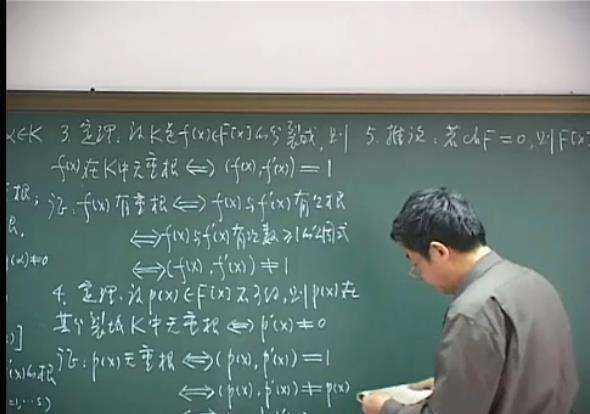 α∈K 3. 定理. 设K是f(x)∈F[x]的分裂域, 则 5. 推论: 若chF=0, 则F[x]
f(x)在K中无重根 ⟺ (f(x), f'(x)) = 1
重根; 证: f(x)有重根 ⟺ f(x)与f'(x)有公根
根. ⟺ f(x)与f'(x)有次数≥1的公因式
(α)≠0 ⟺ (f(x), f'(x)) ≠ 1
4. 定理. 设p(x)∈F[x]不可约, 则p(x)在
某个分裂域K中无重根 ⟺ p'(x)≠0
)]
'(x)的根 证: p(x)无重根 ⟺ (p(x), p'(x)) = 1
=1,…s) ⟺ (p(x), p'(x)) ≠ p(x)